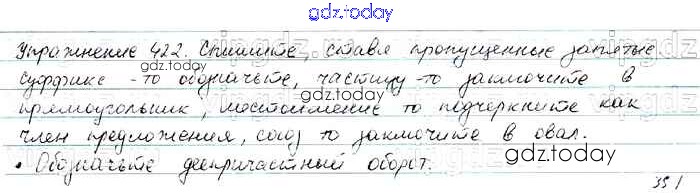 gdz.today
Упражнение 422. Спишите, ставя пропущенные запятые.
gdz.today
Суффикс -то обозначьте, частицу -то заключите в
прямоугольник, местоимение то подчеркните как
gdz.today
член предложения, союз то заключите в овал.
gdz.today
• Обозначьте деепричастный оборот.